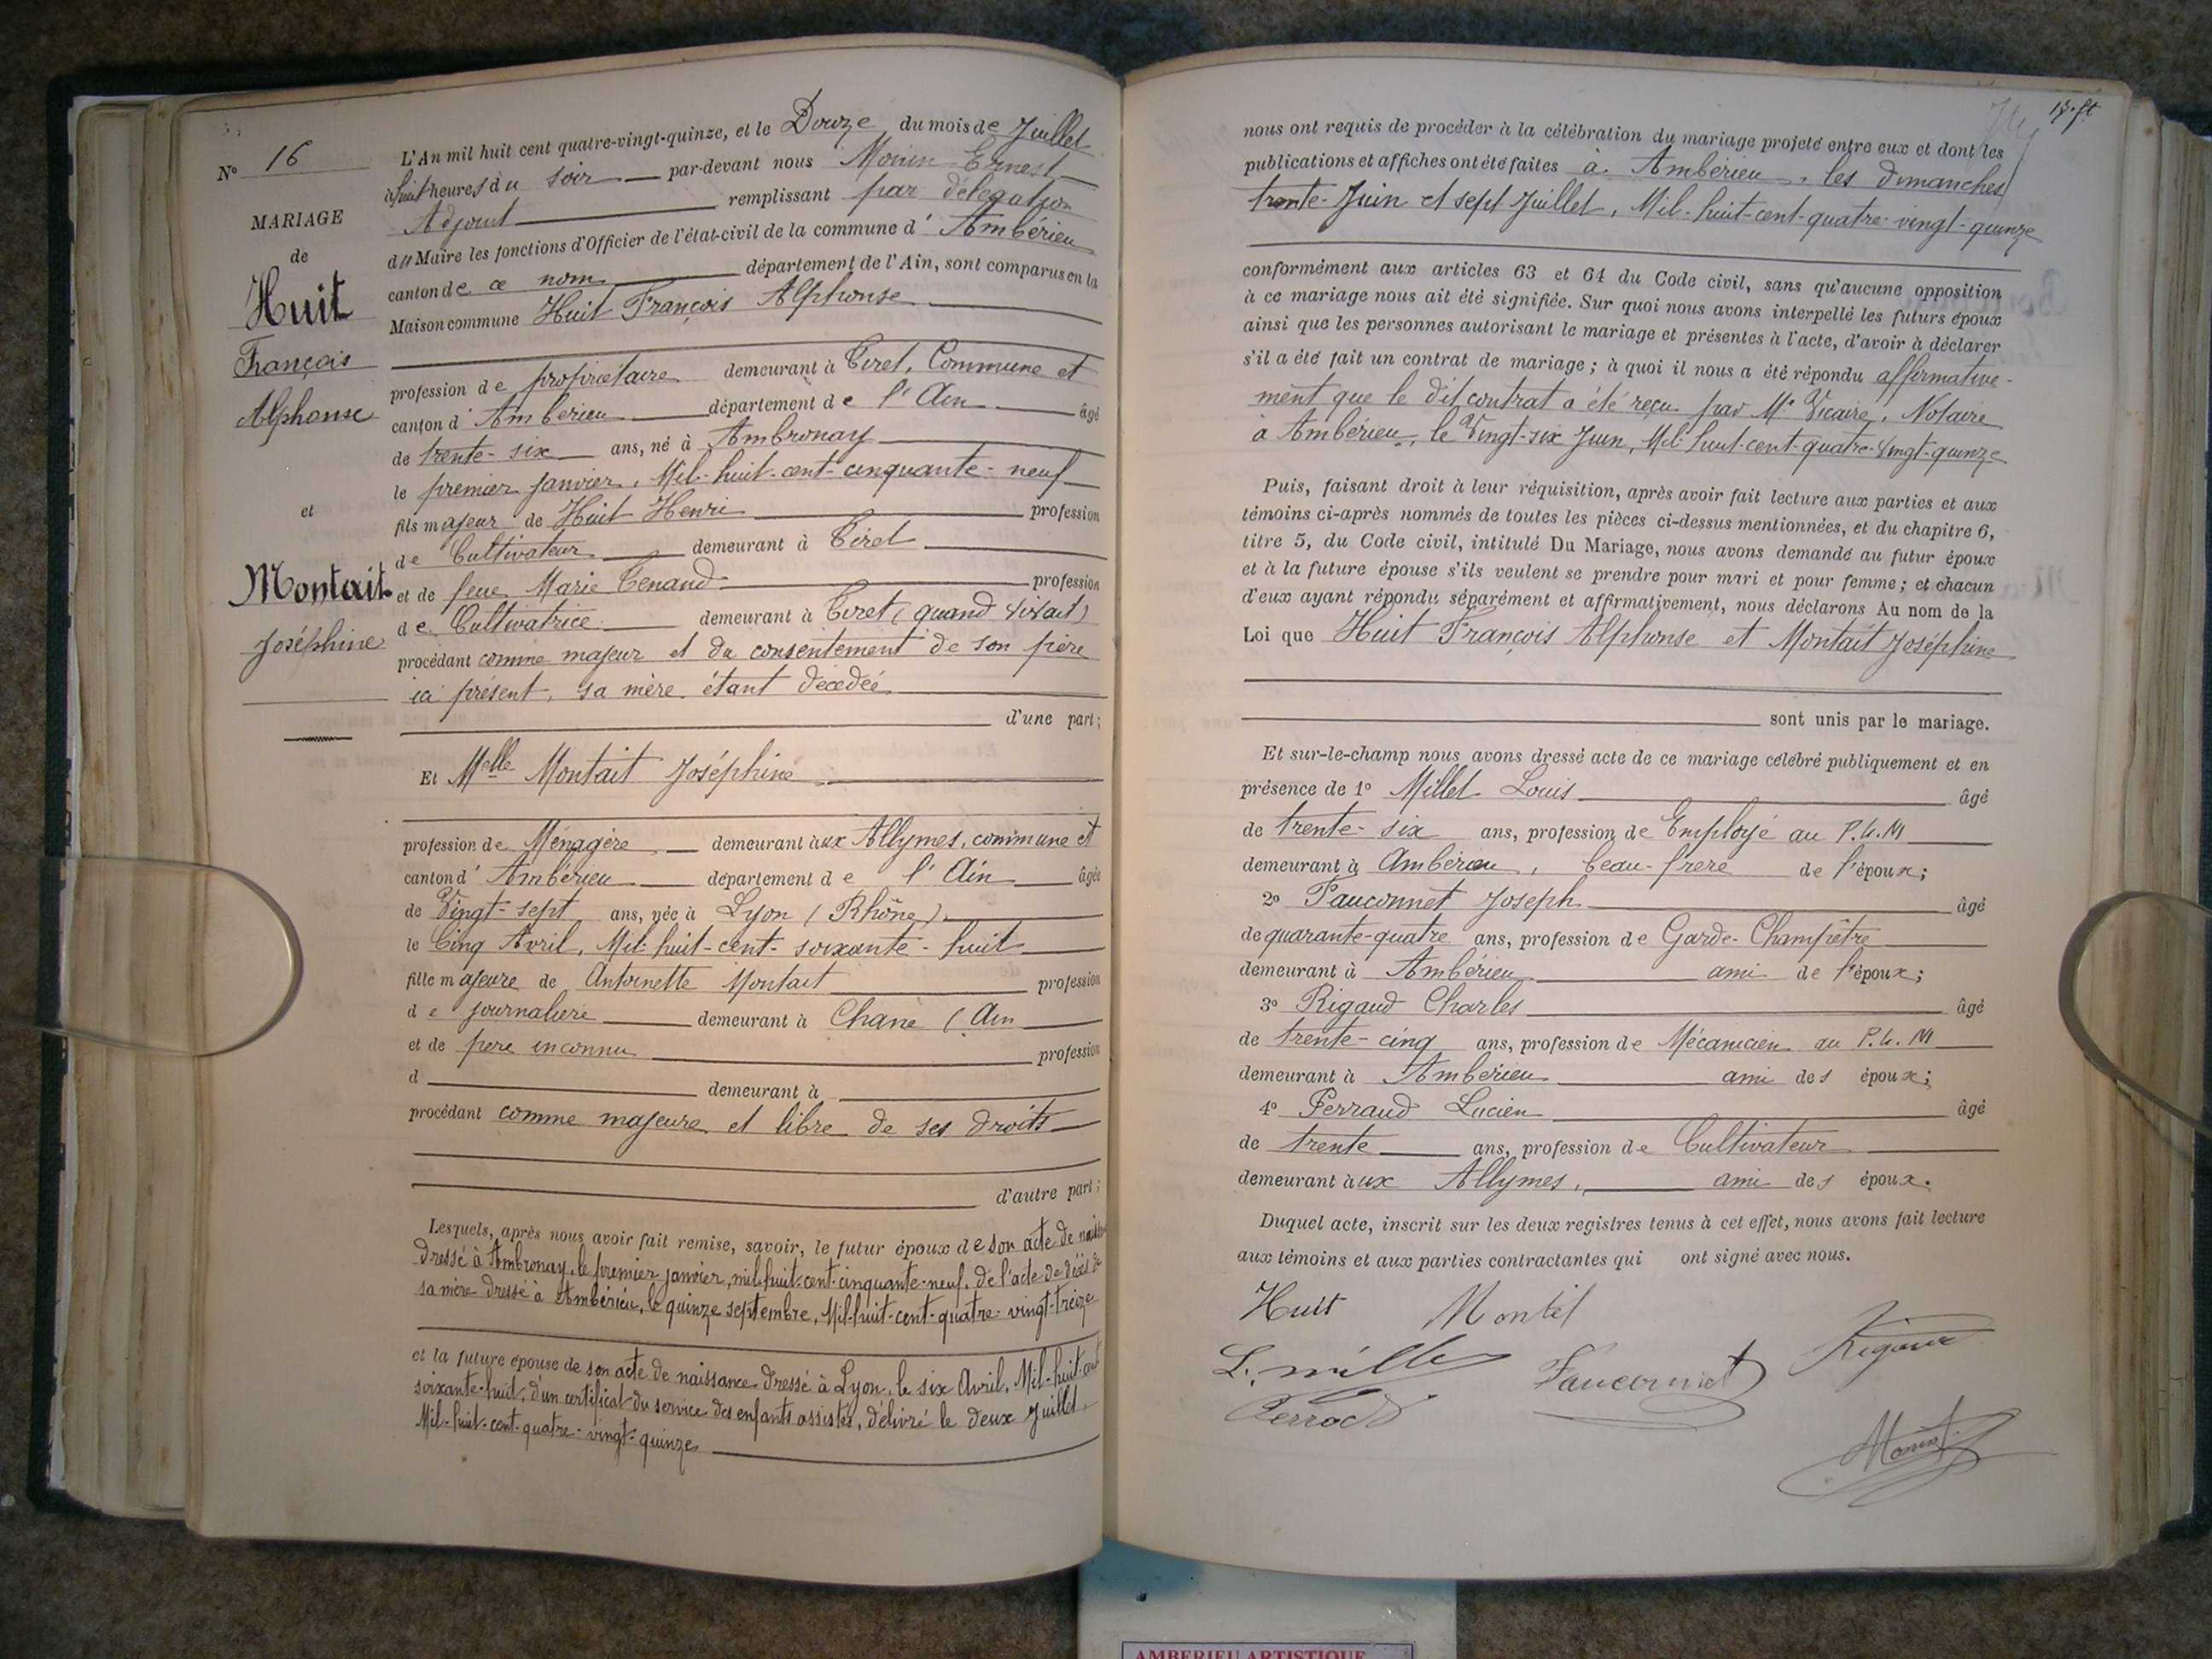 N° 16
MARIAGE
de
Huit
François
Alphonse
et
Montait
Joséphine
L'An mil huit cent quatre-vingt-quinze, et le Douze du mois de Juillet
à huit heures du soir par-devant nous Monin Ernest
Adjoint remplissant par délégation
du Maire les fonctions d'Officier de l'état-civil de la commune d' Ambérieu
canton de ce nom département de l'Ain, sont comparus en la
Maison commune Huit François Alphonse
profession de propriétaire demeurant à Tiret, Commune et
canton d' Ambérieu département de l'Ain âgé
de trente-six ans, né à Ambronay
le premier janvier, Mil-huit-cent-cinquante-neuf
fils majeur de Huit Henri profession
de Cultivateur demeurant à Tiret
et de feue Marie Tenand profession
de Cultivatrice demeurant à Tiret (quand vivait)
procédant comme majeur et du consentement de son père
ici présent, sa mère étant décédée
d'une part;
Et Melle Montait Joséphine
profession de Ménagère demeurant aux Allymes, commune et
canton d' Ambérieu département de l'Ain âgée
de Vingt-sept ans, née à Lyon (Rhône)
le Cinq Avril, Mil-huit-cent-soixante-huit
fille majeure de Antoinette Montait profession
de journalière demeurant à Chane (Ain
et de père inconnu profession
d demeurant à
procédant comme majeure et libre de ses droits
d'autre part;
Lesquels, après nous avoir fait remise, savoir, le futur époux de son acte de
dressé à Ambronay, le premier janvier, mil-huit-cent-cinquante-neuf, de l'acte de décès de
sa mère dressé à Ambérieu, le quinze septembre, Mil-huit-cent-quatre-vingt-treize
et la future épouse de son acte de naissance dressé à Lyon, le six Avril, Mil-huit-cent
soixante-huit, d'un certificat du service des enfants assistés, délivré le deux Juillet
Mil-huit-cent-quatre-vingt-quinze
nous ont requis de procéder à la célébration du mariage projeté entre eux et dont les
publications et affiches ont été faites à Ambérieu, les dimanches
trente-Juin et sept Juillet, Mil-huit-cent-quatre-vingt-quinze
conformément aux articles 63 et 64 du Code civil, sans qu'aucune opposition
à ce mariage nous ait été signifiée. Sur quoi nous avons interpellé les futurs époux
ainsi que les personnes autorisant le mariage et présentes à l'acte, d'avoir à déclarer
s'il a été fait un contrat de mariage; à quoi il nous a été répondu affirmative-
ment que le dit contrat a été reçu par Me Vicaire, Notaire
à Ambérieu, le Vingt-six Juin, Mil-huit-cent-quatre-Vingt-quinze
Puis, faisant droit à leur réquisition, après avoir fait lecture aux parties et aux
témoins ci-après nommés de toutes les pièces ci-dessus mentionnées, et du chapitre 6,
titre 5, du Code civil, intitulé Du Mariage, nous avons demandé au futur époux
et à la future épouse s'ils veulent se prendre pour mari et pour femme; et chacun
d'eux ayant répondu séparément et affirmativement, nous déclarons Au nom de la
Loi que Huit François Alphonse et Montait Joséphine
sont unis par le mariage.
Et sur-le-champ nous avons dressé acte de ce mariage célébré publiquement et en
présence de 1° Millet Louis âgé
de trente-six ans, profession de Employé au P.L.M
demeurant à Ambérieu, beau-frère de l'époux;
2° Fauconnet Joseph âgé
de quarante-quatre ans, profession de Garde-Champêtre
demeurant à Ambérieu ami de l'époux;
3° Rigaud Charles âgé
de trente-cinq ans, profession de Mécanicien au P.L.M
demeurant à Ambérieu ami des époux;
4° Perraud Lucien âgé
de trente ans, profession de Cultivateur
demeurant aux Allymes, ami des époux.
Duquel acte, inscrit sur les deux registres tenus à cet effet, nous avons fait lecture
aux témoins et aux parties contractantes qui ont signé avec nous.
Huit Montet
L. Millet Fauconnet Rigaud
Monin
AMBERIEU ARTISTIQUE